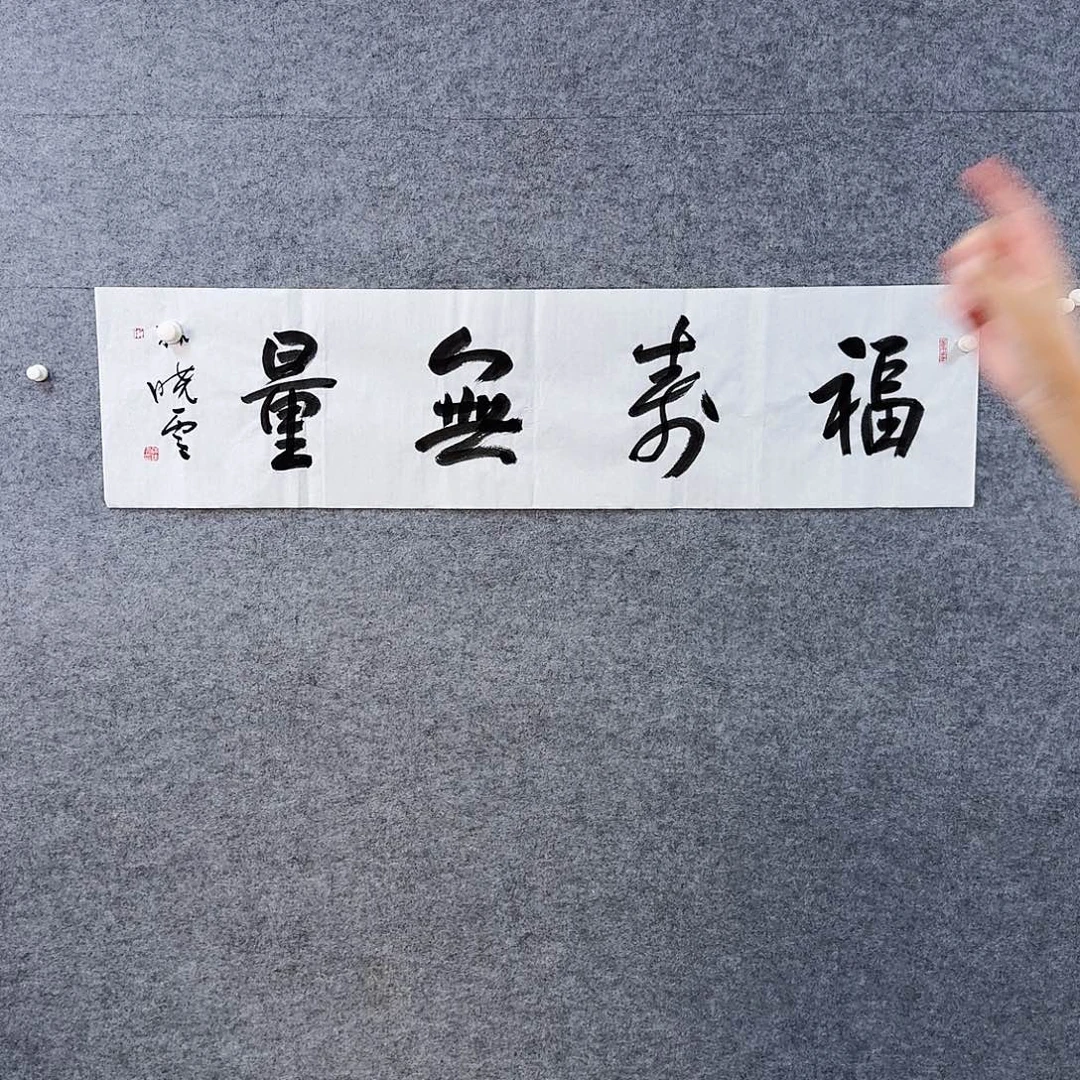 福壽無量
晓雲